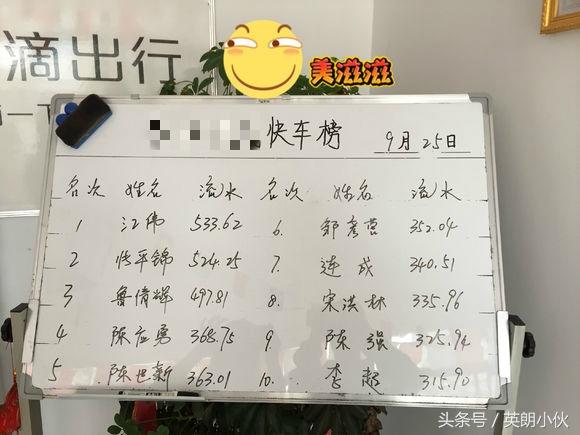 滴出行
美滋滋
快车榜 9月25日
名次 姓名 流水 名次 姓名 流水
1 江伟 533.62 6. 邹彦营 352.04
2 平锦 524.25 7. 连成 340.51
3 鲁倩辉 497.81 8. 宋洪林 335.96
4 陈应勇 368.75 9. 陈强 325.94
5 陈世新 363.01 10. 李超 315.90
头条号/英朗小伙